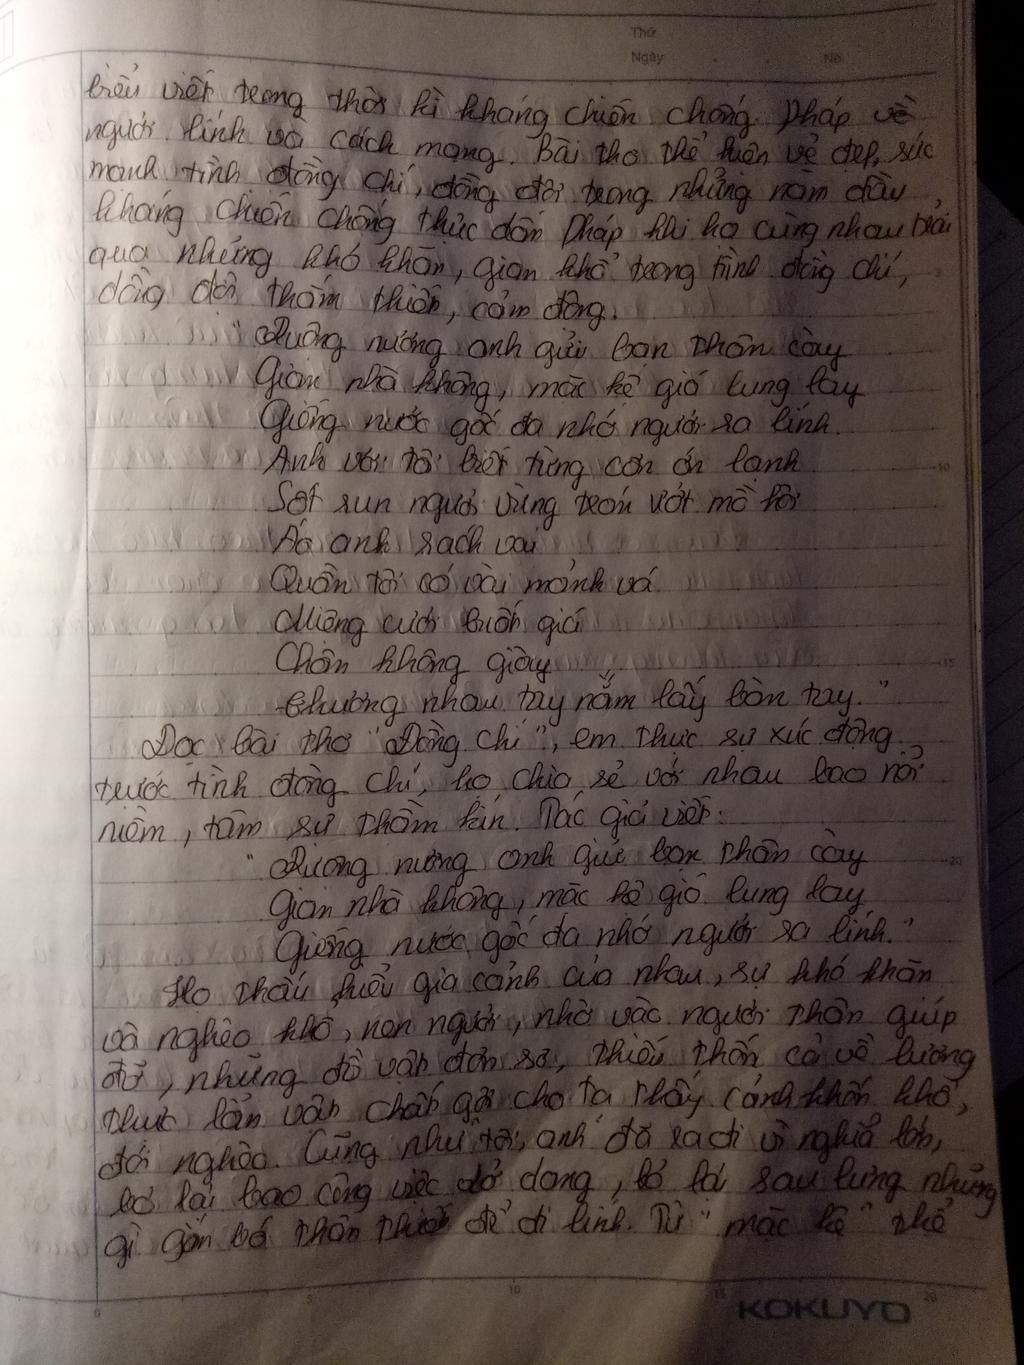 Thứ
Ngày . . No
biểu viết trong thời kì kháng chiến chống Pháp về
người lính và cách mạng. Bài thơ thể hiện vẻ đẹp, sức
mạnh tình đồng chí, đồng đội trong những năm đầu
kháng chiến chống thực dân Pháp khi họ cùng nhau trải
qua những khó khăn, gian khổ trong tình đồng chí,
đồng đội thắm thiết, cảm động.
"Ruộng nương anh gửi bạn thân cày
Gian nhà không, mặc kệ gió lung lay
Giếng nước gốc đa nhớ người ra lính.
Anh với tôi biết từng cơn ớn lạnh
Sốt run người vừng trán ướt mồ hôi
Áo anh rách vai
Quần tôi có vài mảnh vá
Miệng cười buốt giá
Chân không giày
Thương nhau tay nắm lấy bàn tay."
Đọc bài thơ "Đồng chí", em thực sự xúc động
trước tình đồng chí, họ chia sẻ với nhau bao nỗi
niềm, tâm sự thầm kín. Tác giả viết:
"Ruộng nương anh gửi bạn thân cày
Gian nhà không, mặc kệ gió lung lay
Giếng nước gốc đa nhớ người ra lính."
Họ thấu hiểu gia cảnh của nhau, sự khó khăn
và nghèo khổ, neo người, nhờ vào người thân giúp
đỡ, những đồ vật đơn sơ, thiếu thốn cả về lương
thực lẫn vật chất gợi cho ta thấy cảnh khốn khổ,
đói nghèo. Cũng như tôi, anh đã ra đi vì nghĩa lớn,
bỏ lại bao công việc dở dang, bỏ lại sau lưng những
gì gắn bó thân thiết để đi lính. Từ "mặc kệ" thể
0 5 10 15 20
KOKUYO